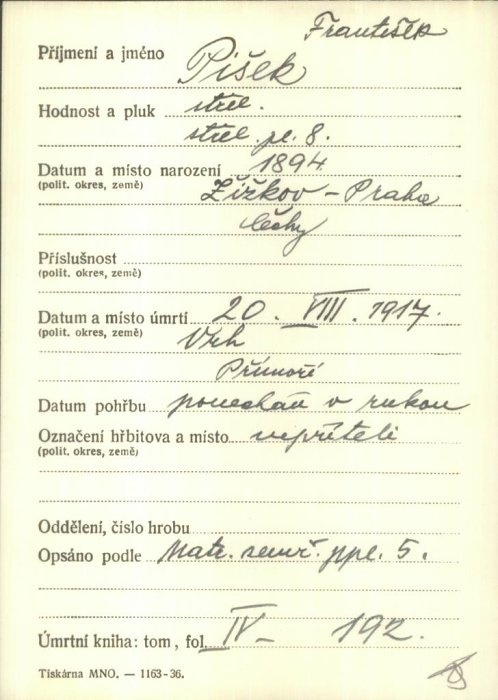 František
Příjmení a jméno Pišek
Hodnost a pluk střel.
střel. pl. 8.
Datum a místo narození 1894
(polit. okres, země) Žižkov – Praha
Čechy
Příslušnost
(polit. okres, země)
Datum a místo úmrtí 20. VIII. 1917.
(polit. okres, země) Vrh
Přímoří
Datum pohřbu ponechán v rukou
Označení hřbitova a místo nepříteli
(polit. okres, země)
Oddělení, číslo hrobu
Opsáno podle Matr. zemř. ppl. 5.
Úmrtní kniha: tom, fol. IV – 192.
Tiskárna MNO. — 1163-36.